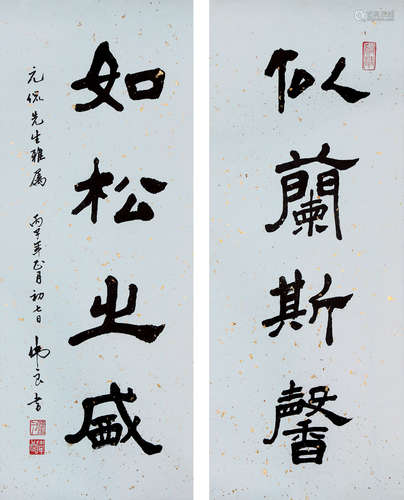 似蘭斯馨
如松之盛
元侃先生雅属
丙子年正月初七日
良書